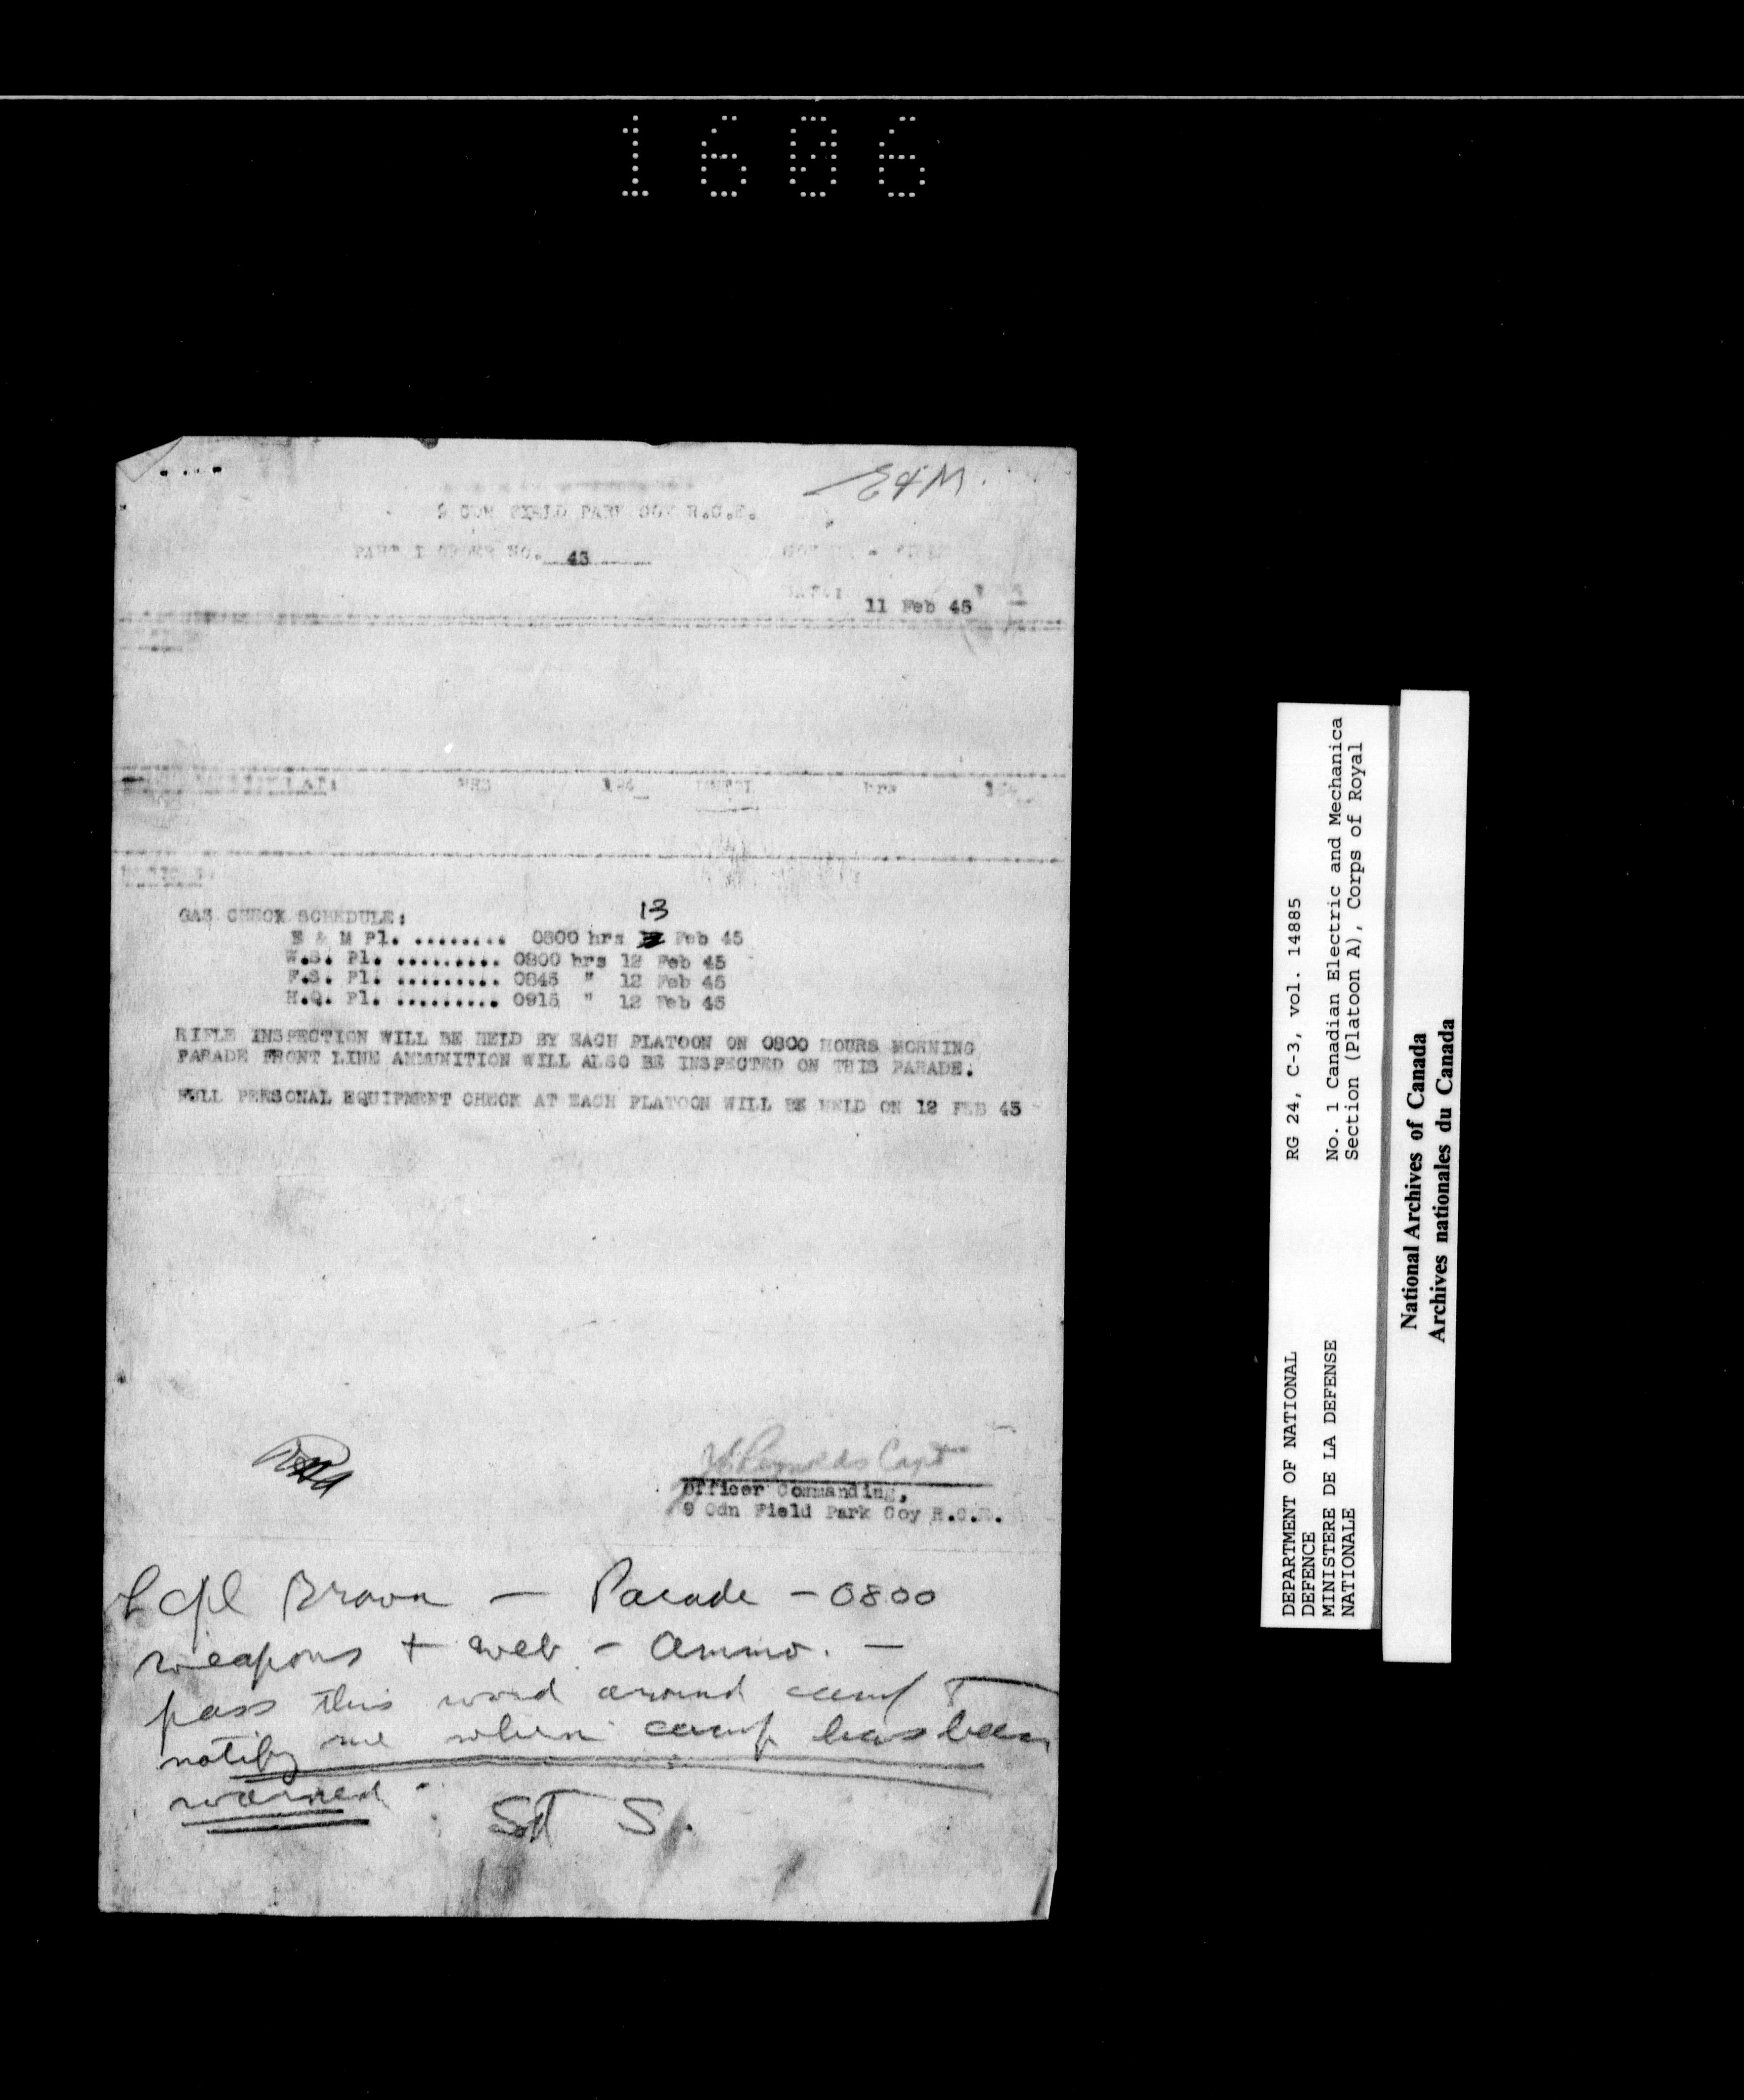 1606
E & M.
9 CDN FIELD PARK COY R.C.E.
PART I ORDER NO. 43
11 Feb 45
HRS 194_ hrs 194_
GAS CHECK SCHEDULE: 13
E & M Pl. ........ 0800 hrs Feb 45
W.S. Pl. ......... 0800 hrs 12 Feb 45
F.S. Pl. ......... 0845 " 12 Feb 45
H.Q. Pl. ......... 0915 " 12 Feb 45
RIFLE INSPECTION WILL BE HELD BY EACH PLATOON ON 0800 HOURS MORNING
PARADE FRONT LINE AMMUNITION WILL ALSO BE INSPECTED ON THIS PARADE.
FULL PERSONAL EQUIPMENT CHECK AT EACH PLATOON WILL BE HELD ON 12 FEB 45
Reynolds Capt
Officer Commanding,
9 Cdn Field Park Coy R.C.E.
L Cpl Brown — Parade - 0800
weapons + web - ammo. —
pass this word around camp
notify me when camp has been
warned
S.
DEPARTMENT OF NATIONAL
DEFENCE
MINISTERE DE LA DEFENSE
NATIONALE
RG 24, C-3, vol. 14885
No. 1 Canadian Electric and Mechanica
Section (Platoon A), Corps of Royal
National Archives of Canada
Archives nationales du Canada